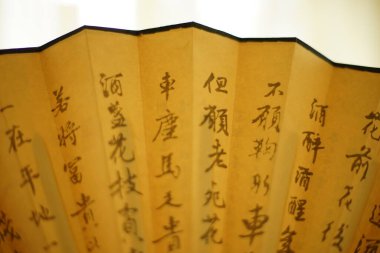 花前花後
酒醉酒醒年
不願鞠躬車
但願老死花
車塵馬足貴
酒盞花枝貧
若將富貴
一在平地